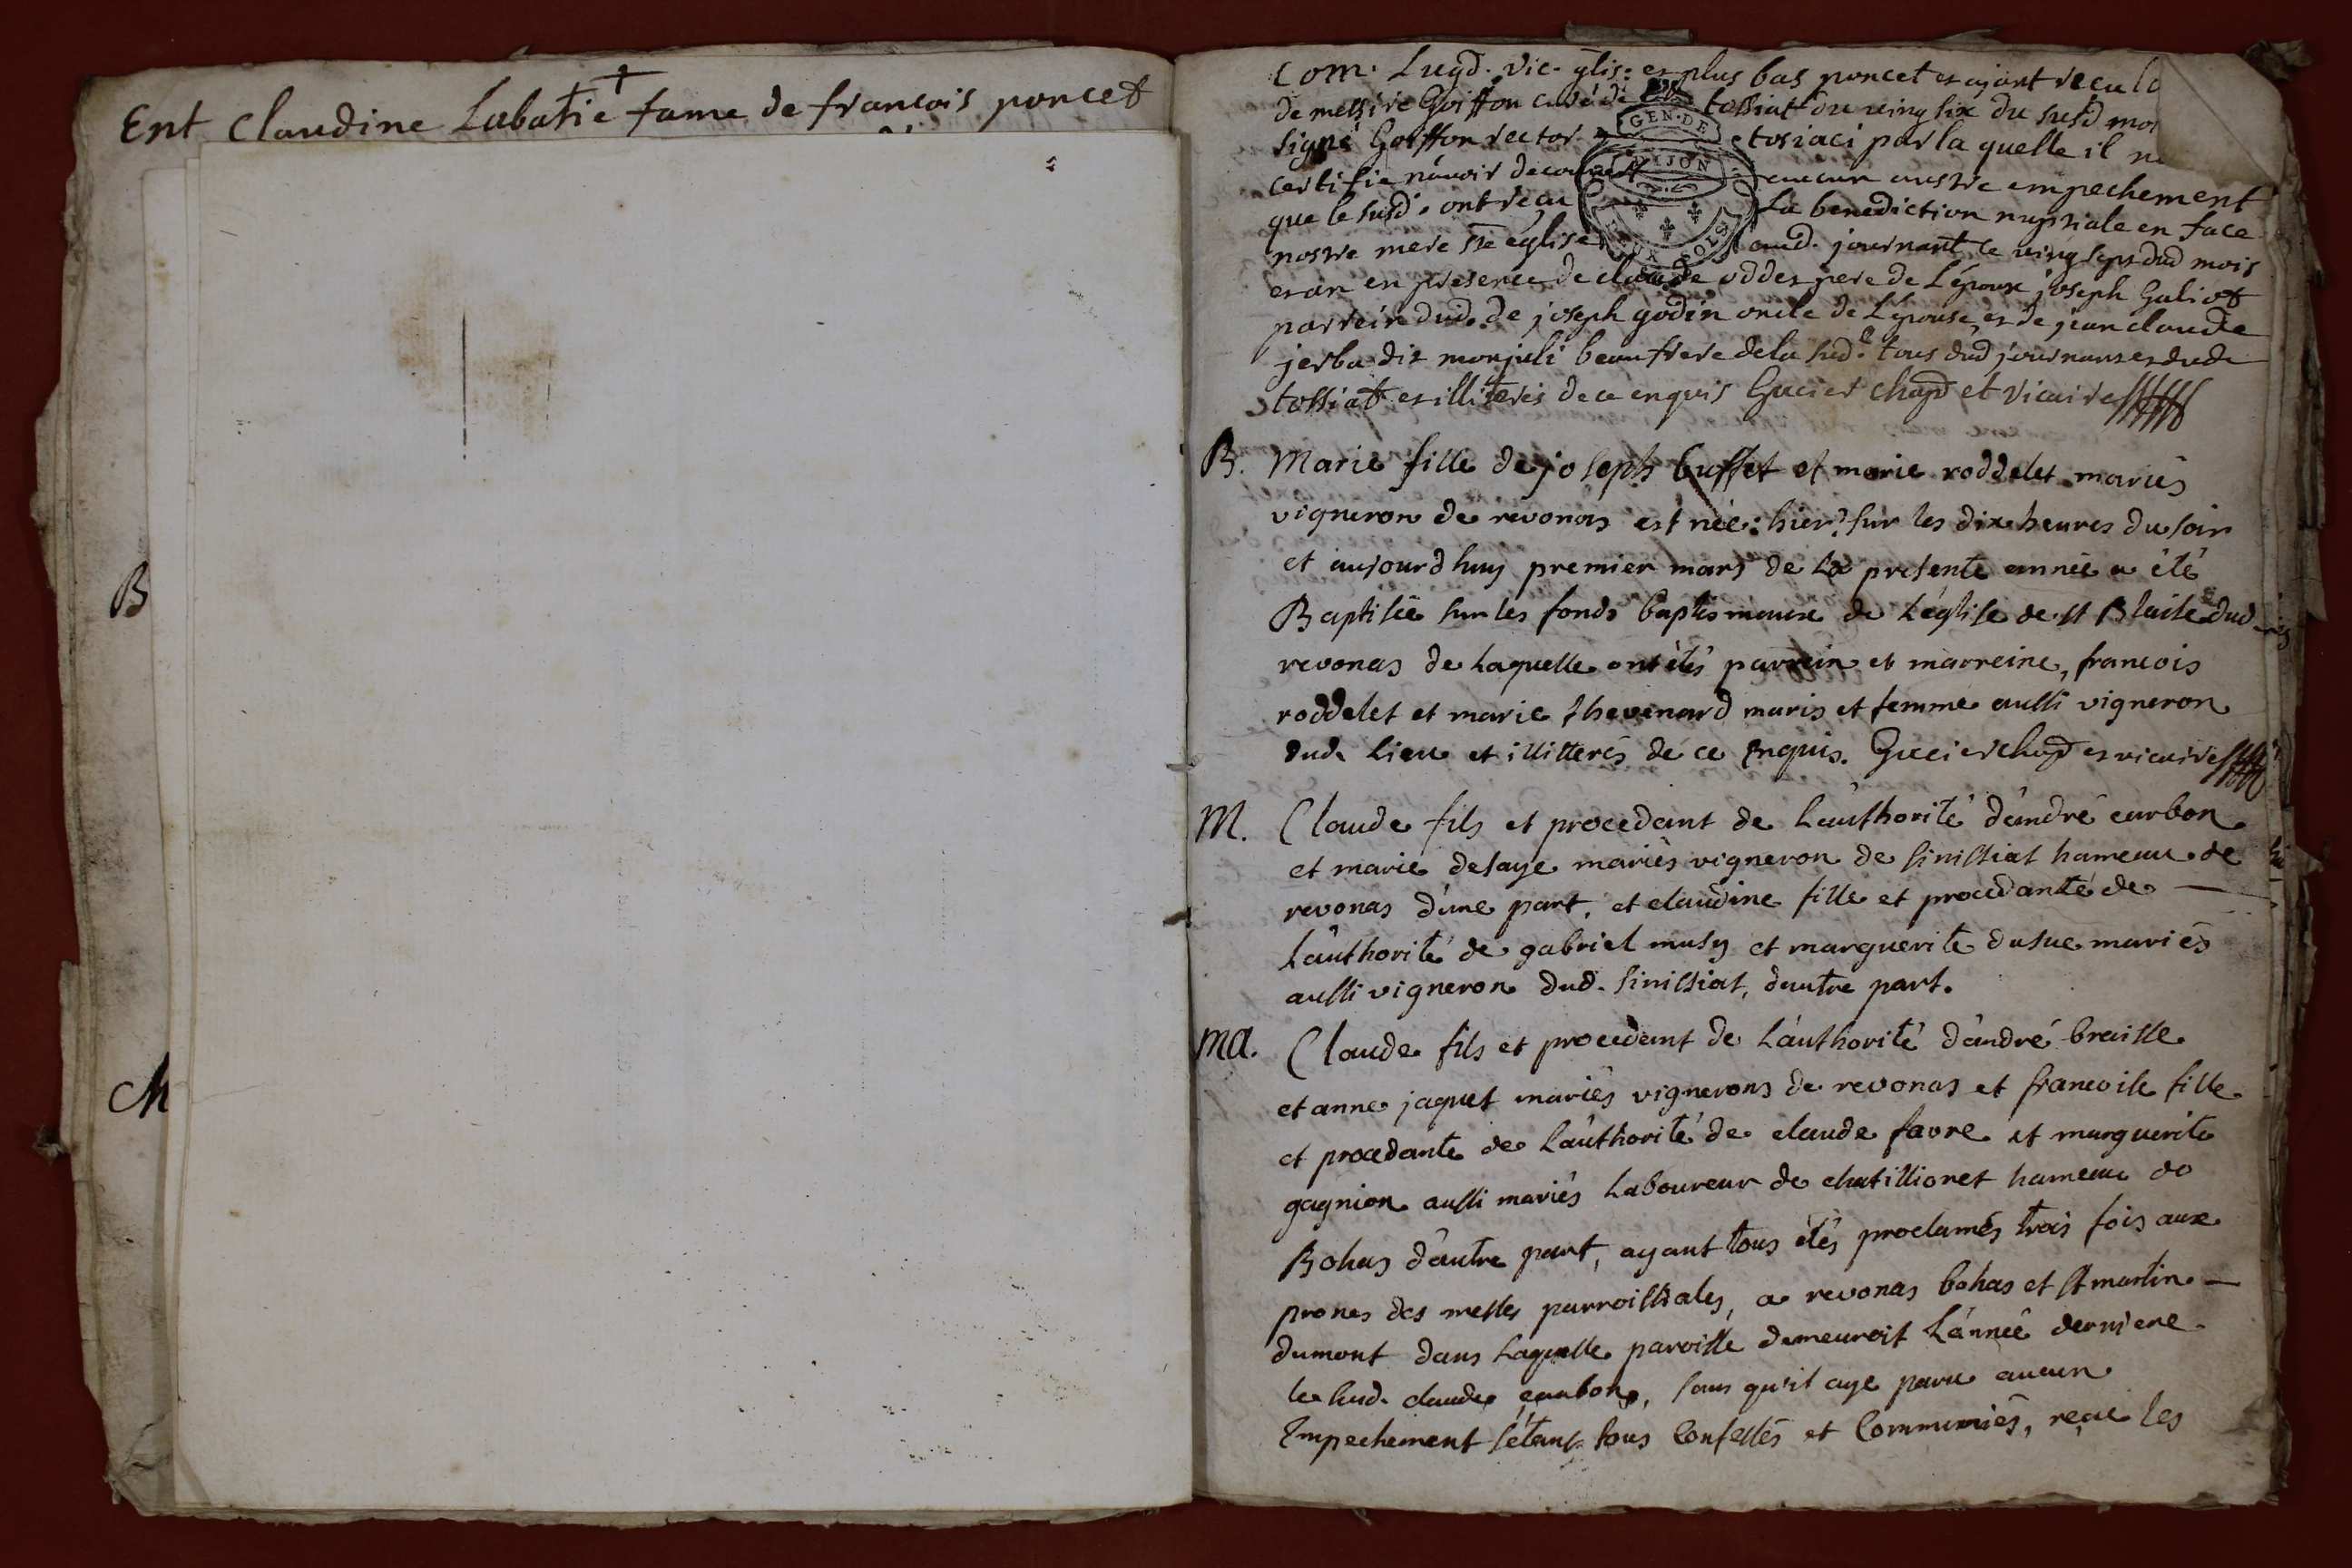 Ent Claudine Labatie fame de francois poncet
B
M
Com. Lugd. vic. glis: et plus bas poncet et ajant recu
de messire Goiffon curé de tossiat du ving six du susd
signé Goiffon rector tosiaci par la quelle il
certifie n'avoir decouvert aucun austre empechement
que le susd. ont recu La benediction nuptiale en face
nostre mere ste église aud. journant, ce ving sept dud mois
et an en presence de claude oddet pere de L'époux joseph Galiot
parrein dud. de joseph godin oncle de L'épouse, et de jean claude
jerba dit monjuli beaufrere dela sud.e tous dud journans et dude
tossiat et illiterés de ce enquis Gucier chapd et vicaire
GEN. DE
DIJON
DEUX SOLS
B. Marie fille de joseph buffet et marie roddelet mariés
vigneron de revonas est née: hier: sur les dix heures du soir
et aujourdhuy premier mars de La presente année a été
Baptisée sur les fonds baptismaux de L'église de st Blaise dud
revonas de Laquelle ont étés parrein et marreine, francois
roddelet et marie thevenard maris et femme aussi vigneron
dud. Lieu et illitterés de ce Enquis. Gucier chapd et vicaire
M. Claude fils et procedant de L'authorité d'andré curbon
et marie desaye mariés vigneron de sinissiat hameau de
revonas d'une part, et claudine fille et procedante de
L'authorité de gabriel musy et marguerite dusue mariés
aussi vigneron dud. sinissiat, dautre part.
Ma. Claude fils et procedant de L'authorité d'andré braisse
et anne jaquet mariés vignerons de revonas et francoise fille
et procedante de L'authorité de claude favre et marguerite
gagnion aussi mariés Laboureur de chatillionet hameau de
Bohas d'autre part, ayant tous étés proclamés trois fois aux
prones des messes parroissiales, a revonas bohas et St martin
dumont dans Laquelle paroisse demeuroit L'année derniere
le sud. claude curbon, sans qu'il aye paru aucun
Empechement s'étant tous Confessés et Communiés, reçu les